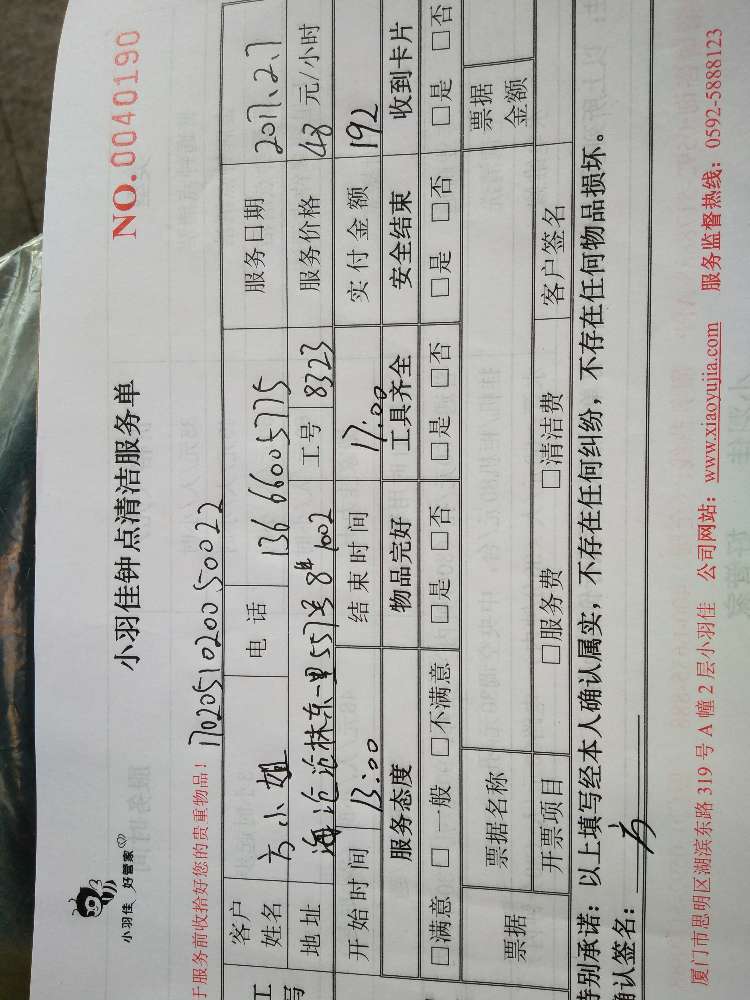 小羽佳 好管家
小羽佳钟点清洁服务单
NO.0040190
于服务前收拾好您的贵重物品！
1702051020050022
客户姓名 方小姐 电话 13666005775 服务日期 2017.2.7
地址 海沧沧林东一里557号 1002 工号 8323 服务价格 48 元/小时
开始时间 13:00 结束时间 17:00 实付金额 192
服务态度 物品完好 工具齐全 安全结束 收到卡片
□满意 □一般 □不满意 □是 □否 □是 □否 □是 □否 □是 □否
票据 票据名称 票据金额
开票项目 □服务费 □清洁费 客户签名
特别承诺：以上填写经本人确认属实，不存在任何纠纷，不存在任何物品损坏。
确认签名： 方
厦门市思明区湖滨东路 319 号 A 幢 2 层小羽佳 公司网站：www.xiaoyujia.com 服务监督热线：0592-5888123